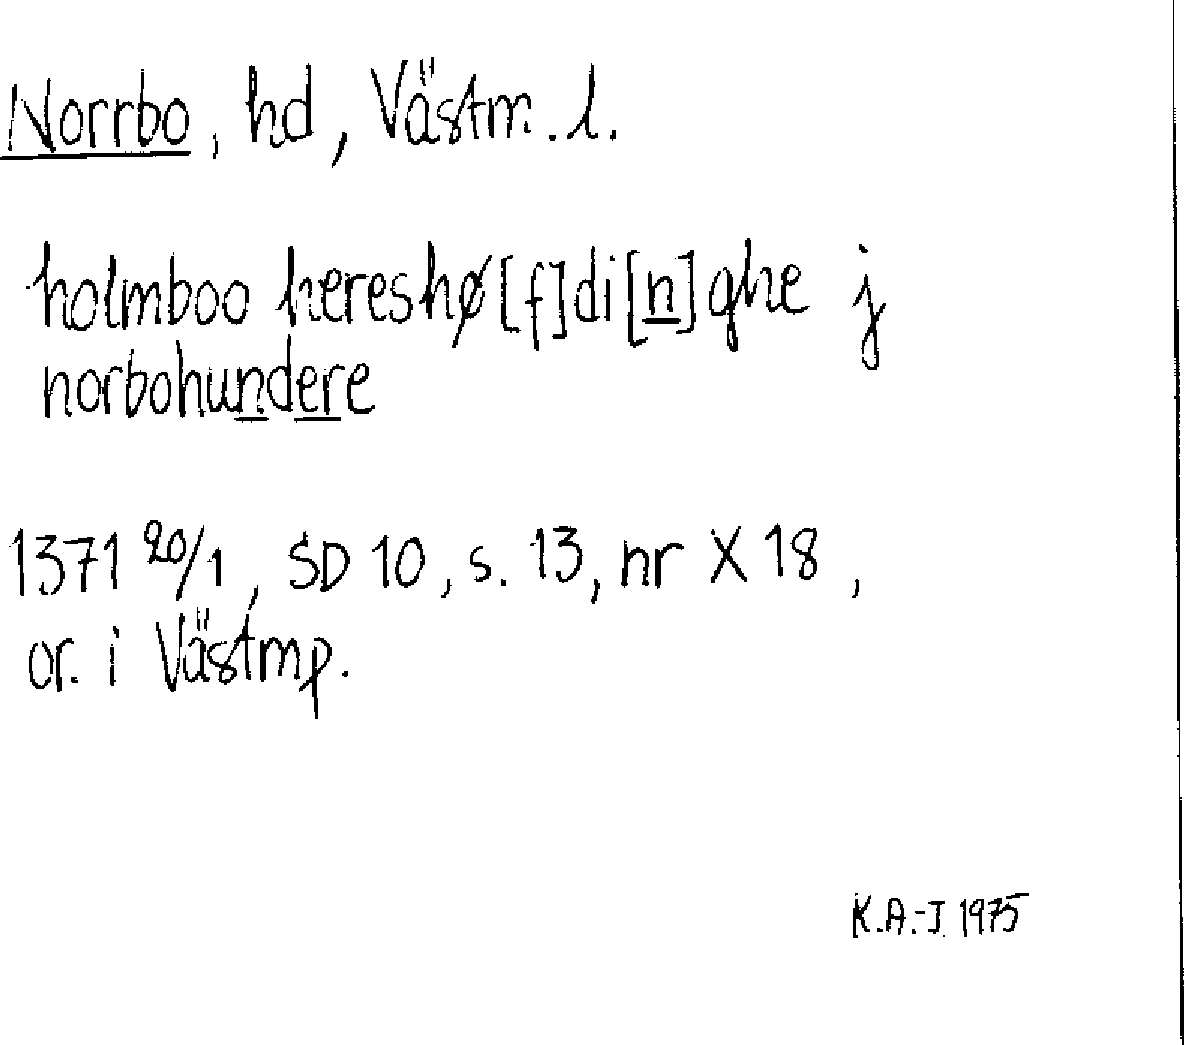 Norrbo, hd, Västm. l.
holmboo hereshø[f]di[n]ghe j
norbohundere
1371 20/1, SD 10, s. 13, nr X 18,
or. i Västmp.
K.A.-J. 1975